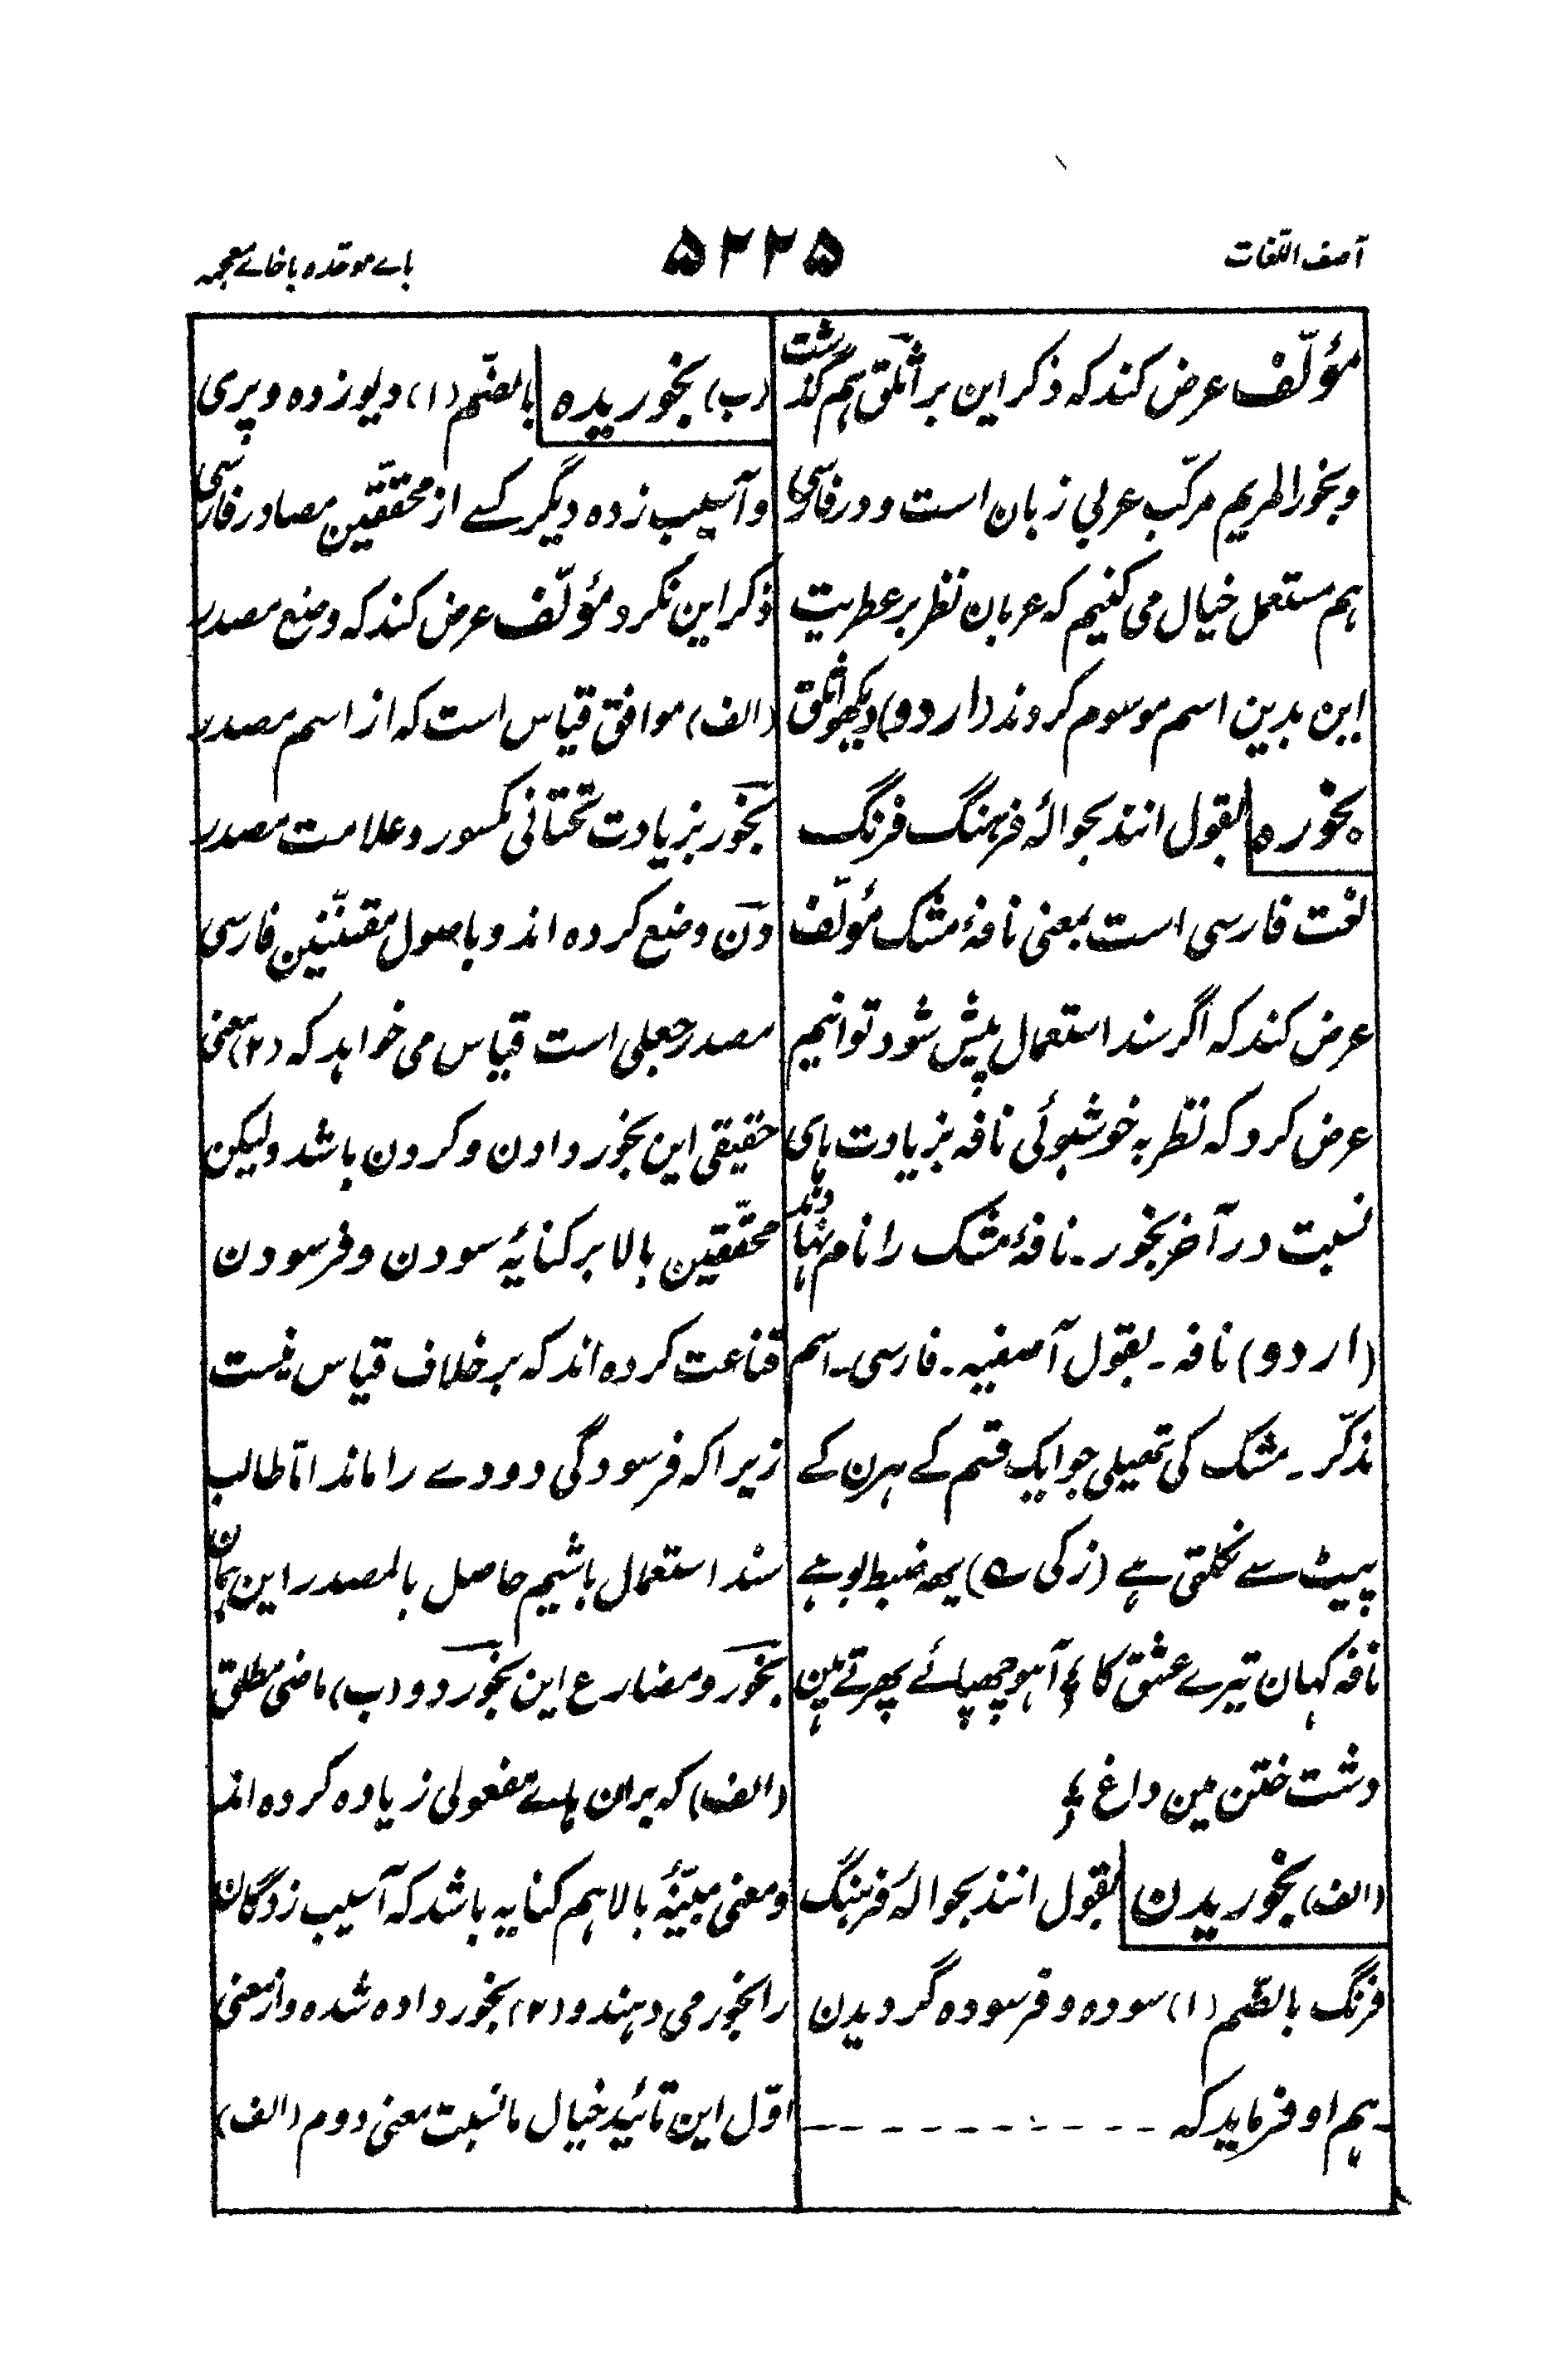 آصف اللغات
۵۲۲۵
باے موحّدہ باخاے معجمہ
مؤلّف عرض کند کہ ذکر این بر اثلق ہم گذشت
و بخور المریم مرکّب عربی زبان است و در فارسی
ہم مستعمل خیال می کنیم کہ عربان نظر بر عطریت
این بدین اسم موسوم کردند (اردو) دیکھو اثلق
بخورہ بقول انند بحوالۂ فرہنگ فرنگ
لغت فارسی است بمعنی نافۂ مشک مؤلّف
عرض کند کہ اگر سند استعمال پیش شود توانیم
عرض کرد کہ نظر بہ خوشبوئی نافہ بزیادت ہای
نسبت در آخر بخور ۔ نافۂ مشک را نام نہادند
(اردو) نافہ ۔ بقول آصفیہ ۔ فارسی ۔ اسم
مذکّر ۔ مشک کی تھیلی جو ایک قسم کے ہرن کے
پیٹ سے نکلتی ہے (زکی ؎) یہہ ضبط بو ہے
نافہ کہان تیرے عشق کا ؛ آہو چھپائے پھرتے ہین
دشت ختن مین داغ ؛
(الف) بخوریدن بقول انند بحوالۂ فرہنگ
فرنگ بالضّم (۱) سودہ و فرسودہ گردیدن
ہم او فرماید کہ ۔ ۔ ۔ ۔ ۔ ۔ ۔ ۔ ۔ ۔
(ب) بخوریدہ بالضّم (۱) دیوزدہ و پری
و آسیب زدہ دیگر کسے از محقّقین مصادر فارسی
ذکر این نکرد مؤلّف عرض کند کہ وضع مصدر
(الف) موافق قیاس است کہ از اسم مصدر
بخور بزیادت تحتانی مکسور و علامت مصدر
دن وضع کردہ اند و باصول مقنّنین فارسی
مصدر جعلی است قیاس می خواہد کہ (۲) معنی
حقیقی این بخور دادن و کردن باشد ولیکن
محقّقین بالا بر کنایۂ سودن و فرسودن
قناعت کردہ اند کہ بر خلاف قیاس نیست
زیراکہ فرسودگی دودے را ماند امّا طالب
سند استعمال باشیم حاصل بالمصدر این ہمان
بخور و مضارع این بخورد و (ب) ماضی مطلق
(الف) کہ بران ہاے مفعولی زیادہ کردہ اند
و معنی مبیّنۂ بالا ہم کنایہ باشد کہ آسیب زدگان
را بخور می دہند و (۲) بخور دادہ شدہ و از معنی
اوّل این تائید خیال ما نسبت معنی دوم (الف)